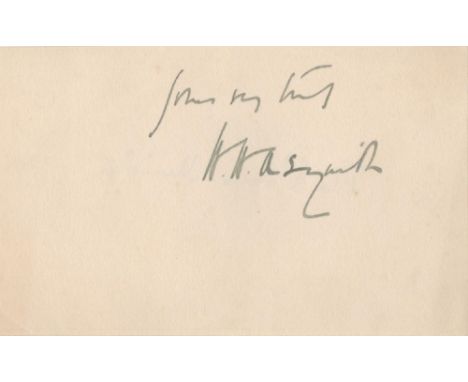 Yours very truly
H. H. Asquith